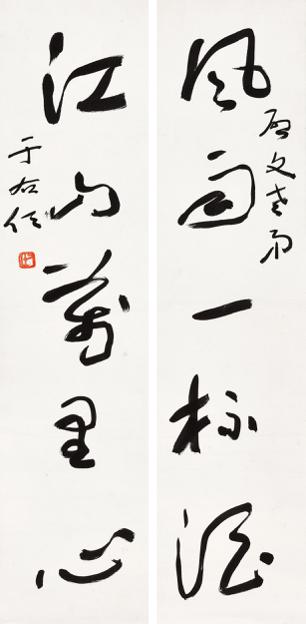 風雨一杯酒
文老弟
江山萬里心
于右任